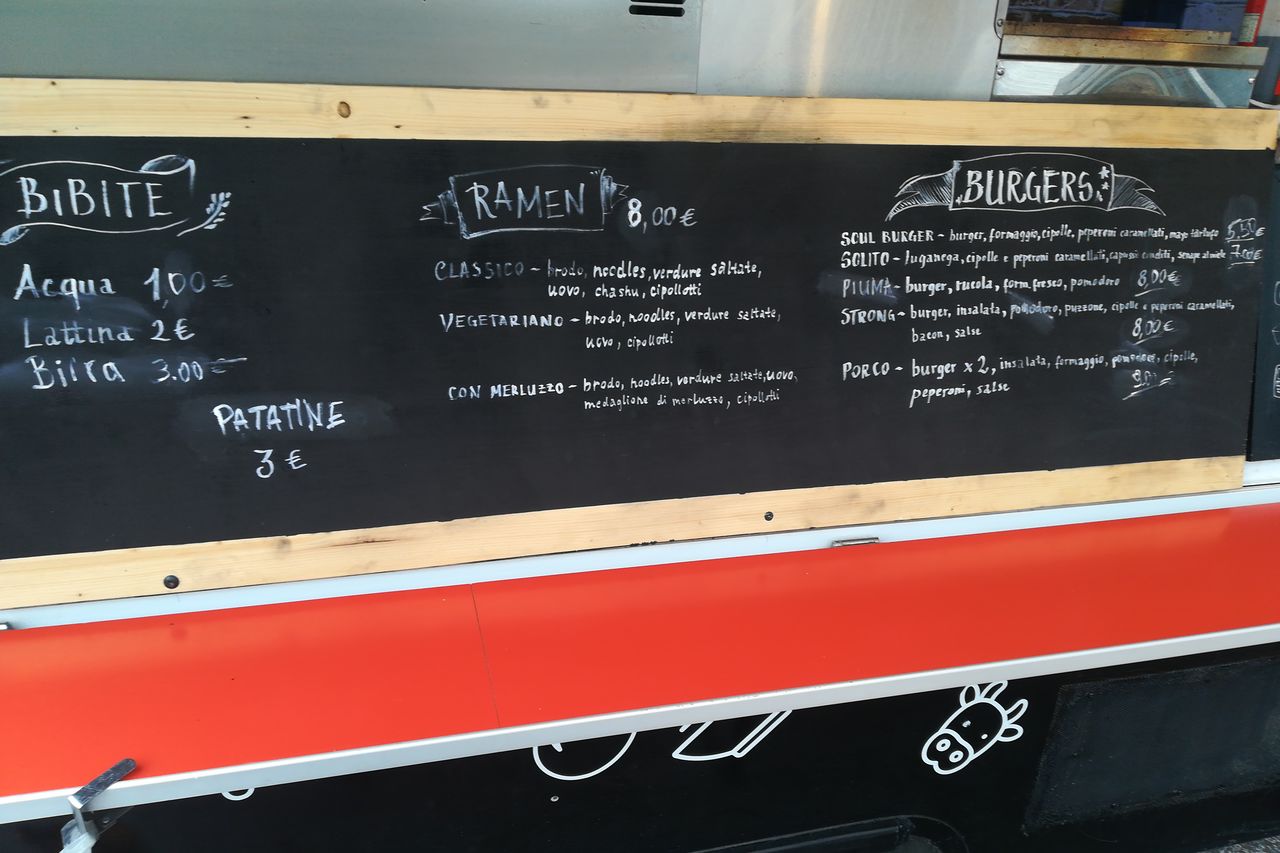 BIBITE
Acqua 1,00 €
Lattina 2 €
Birra 3.00 €
PATATINE
3 €
RAMEN 8,00 €
CLASSICO - brodo, noodles, verdure saltate,
uovo, chashu, cipollotti
VEGETARIANO - brodo, noodles, verdure saltate,
uovo, cipollotti
CON MERLUZZO - brodo, noodles, verdure saltate, uovo,
medaglione di merluzzo, cipollotti
BURGERS
SOUL BURGER - burger, formaggio, cipolle, peperoni caramellati, mayo tartufo 5,50 €
SOLITO - luganega, cipolle e peperoni caramellati, senape al miele 7.00 €
PIUMA - burger, rucola, form. fresco, pomodoro 8,00 €
STRONG - burger, insalata, pomodoro, puzzone, cipolle e peperoni caramellati,
bacon, salse 8,00 €
PORCO - burger x 2, insalata, formaggio, pomodoro, cipolle,
peperoni, salse